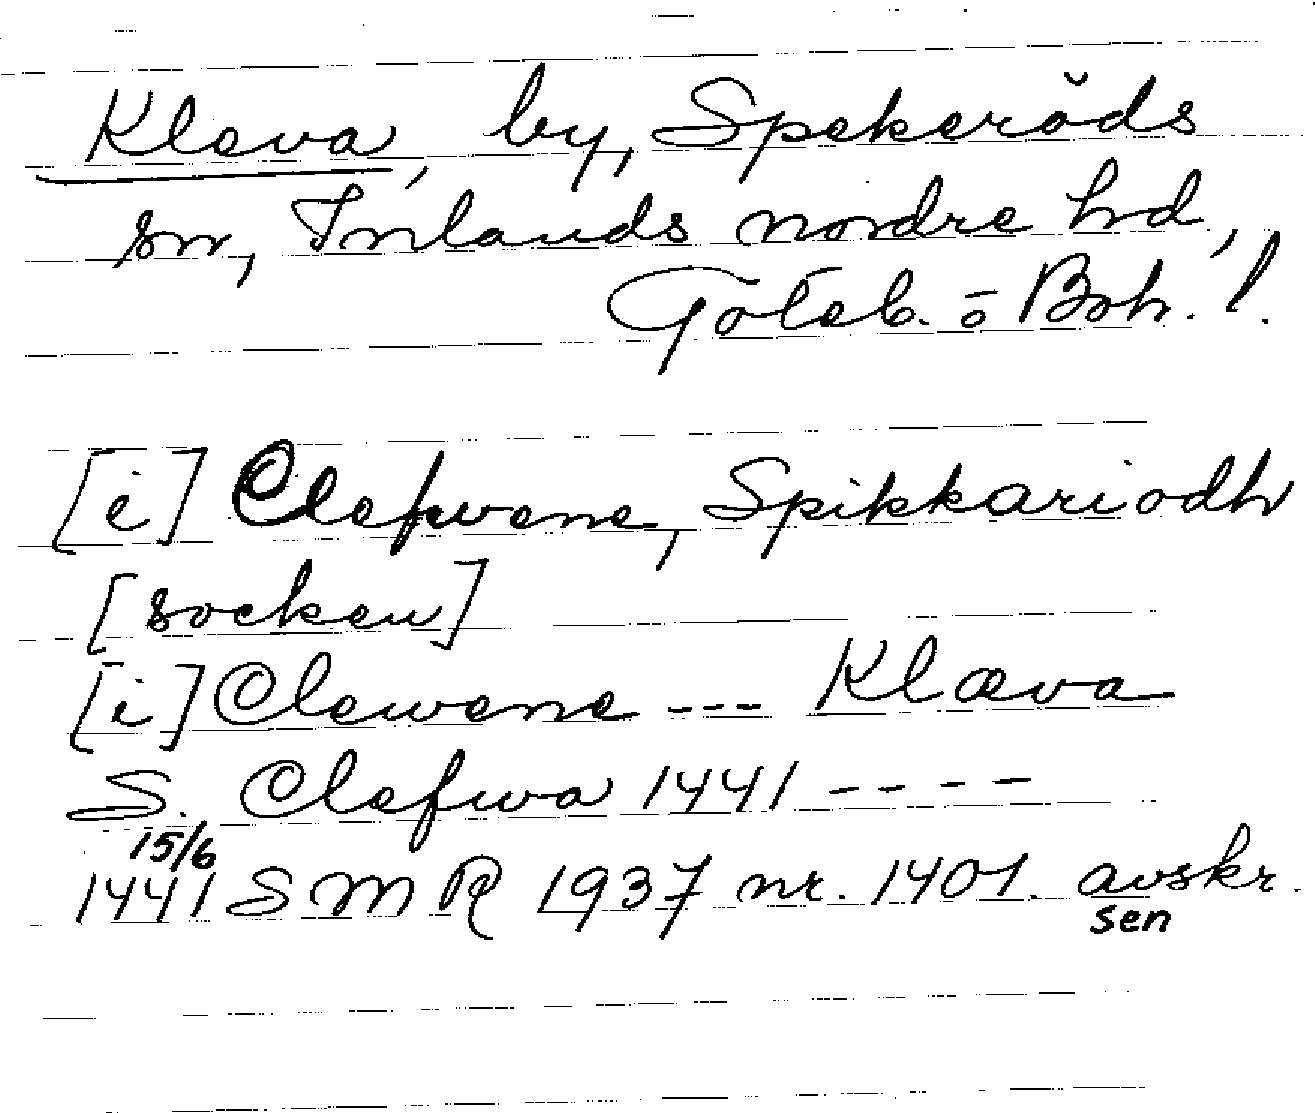 Kleva, by, Spekeröds
sn, Inlands nordre hd,
Göteb. o Boh. l.
[i] Clefwene, Spikkariodh
[socken]
[i] Clewene --- Klæva
S. Clefwa 1441 ----
15/6
1441 SMR 1937 nr. 1401. avskr.
sen